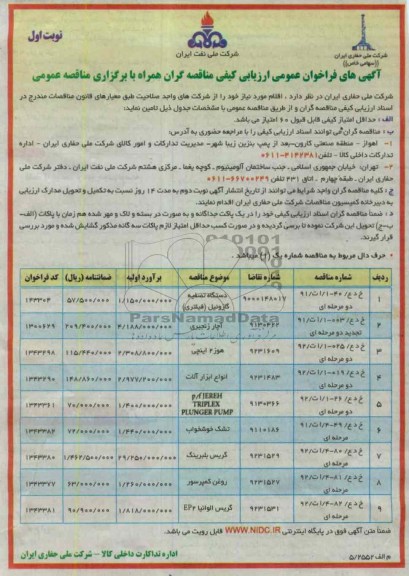 نوبت اول
شرکت ملی نفت ایران
شرکت ملی حفاری ایران
((سهامی خاص))
آگهی های فراخوان عمومی ارزیابی کیفی مناقصه گران همراه با برگزاری مناقصه عمومی
شرکت ملی حفاری ایران در نظر دارد ، اقلام مورد نیاز خود را از شرکت های واجد صلاحیت طبق معیارهای قانون مناقصات مندرج در
اسناد ارزیابی کیفی مناقصه گران و از طریق مناقصه عمومی با مشخصات جدول ذیل تامین نماید:
الف : حداقل امتیاز کیفی قابل قبول ۶۰ امتیاز می باشد.
ب : مناقصه گران می توانند اسناد ارزیابی کیفی را با مراجعه حضوری به آدرس:
۱- اهواز - منطقه صنعتی کارون-بعد از پمپ بنزین زیبا شهر- مدیریت تدارکات و امور کالای شرکت ملی حفاری ایران - اداره
تدارکات داخلی کالا - تلفن
۲- تهران، خیابان جمهوری اسلامی ـ جنب ساختمان آلومینیوم ـ کوچه یغما ـ مرکزی هشتم شرکت ملی نفت ایران ـ دفتر شرکت ملی
حفاری ایران ـ طبقه چهارم ـ اتاق ۴۳۱ تلفن
ج : کلیه مناقصه گران واجد شرایط می توانند از تاریخ انتشار آگهی نوبت دوم به مدت ۱۴ روز نسبت به تکمیل و تحویل مدارک ارزیابی
به دبیرخانه کمیسیون مناقصات شرکت ملی حفاری ایران اقدام نمایند.
د : ضمناً مناقصه گران اسناد ارزیابی کیفی خود را در یک پاکت جداگانه و به صورت در بسته و لاک و مهر شده هم زمان با پاکات (الف-
ب-ج) تحویل این شرکت نموده تا بررسی گردیده و در صورت کسب حداقل امتیاز لازم پاکات سه گانه مذکور گشایش شده و مورد بررسی
قرار گیرند.
ردیف شماره مناقصه شماره تقاضا موضوع مناقصه برآورد اولیه ضمانتنامه (ریال) کد فراخوان
۱ دو مرحله ای دستگاه تصفیه گازوئیل (فیلتری) ۱/۱۵۰/۰۰۰/۰۰۰ ۵۷/۵۰۰/۰۰۰
۲ تجدید دو مرحله ای آچار زنجیری ۴/۱۸۸/۰۰۰/۰۰۰ ۲۰۹/۴۰۰/۰۰۰
۳ دو مرحله ای ۹۲۳۱۶۰۹ هوز ۲ اینچی ۲/۳۰۸/۸۰۰/۰۰۰ ۱۱۵/۴۴۰/۰۰۰
۴ دو مرحله ای ۹۲۳۱۴۸۳ انواع ابزار آلات ۲/۹۷۷/۲۰۰/۰۰۰ ۱۴۸/۸۶۰/۰۰۰
۵ دو مرحله ای ۹۱۳۰۳۶۶ p/f JEREH TRIPLEX PLUNGER PUMP ۱/۴۰۰/۰۰۰/۰۰۰ ۷۰/۰۰۰/۰۰۰
۶ دو مرحله ای ۹۱۱۰۱۸۶ تشک خوشخواب ۱/۴۴۰/۰۰۰/۰۰۰ ۷۲/۰۰۰/۰۰۰
۷ دو مرحله ای ۹۲۳۱۵۲۹ گریس بلبرینگ ۲۹/۲۵۰/۰۰۰/۰۰۰ ۱/۴۶۲/۵۰۰/۰۰۰
۸ دو مرحله ای ۹۲۳۱۵۲۷ روغن کمپرسور ۱/۲۶۰/۰۰۰/۰۰۰ ۶۳/۰۰۰/۰۰۰
۹ دو مرحله ای ۹۲۳۱۵۳۱ گریس الوانیا EP2 ۱/۸۱۸/۰۰۰/۰۰۰ ۹۰/۹۰۰/۰۰۰
ضمناً متن آگهی فوق در پایگاه اینترنتی WWW.NIDC.IR قابل رویت می باشد.
اداره تدارکات داخلی کالا – شرکت ملی حفاری ایران
م الف ۵/۲۵۵۲